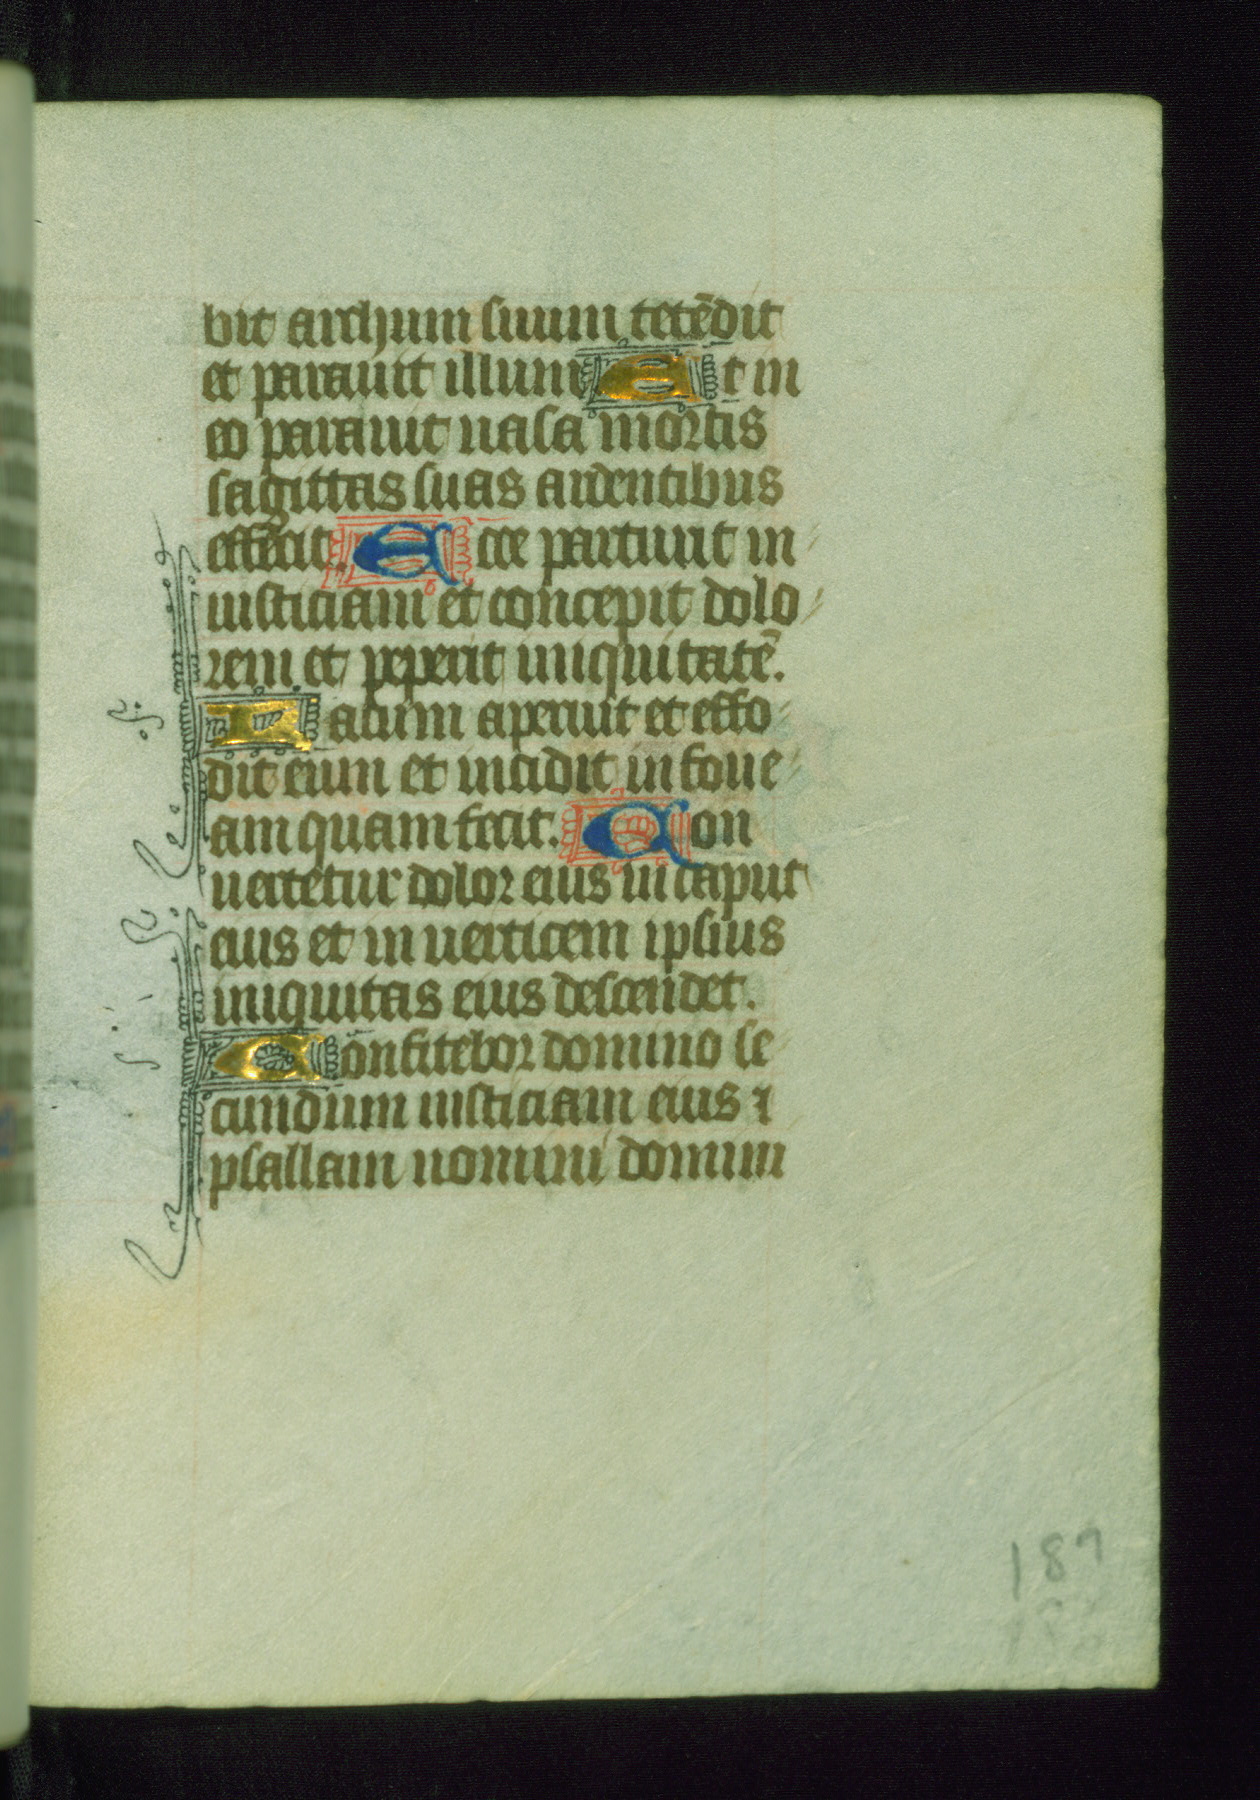 bit archum suum tetēdit
et parauit illum Et in
eo parauit uasa mortis
sagittas suas ardentibus
effecit. Ecce parturit in
iusticiam et concepit dolo
rem et peperit iniquitatē.
Lacum aperuit et effo
dit eum et incidit in foue
am quam fecit. Con
uertetur dolor eius in caput
eius et in uerticem ipsius
iniquitas eius descendet.
Confitebor domino se
cundum iusticiam eius ⁊
psallam nomini domini
187